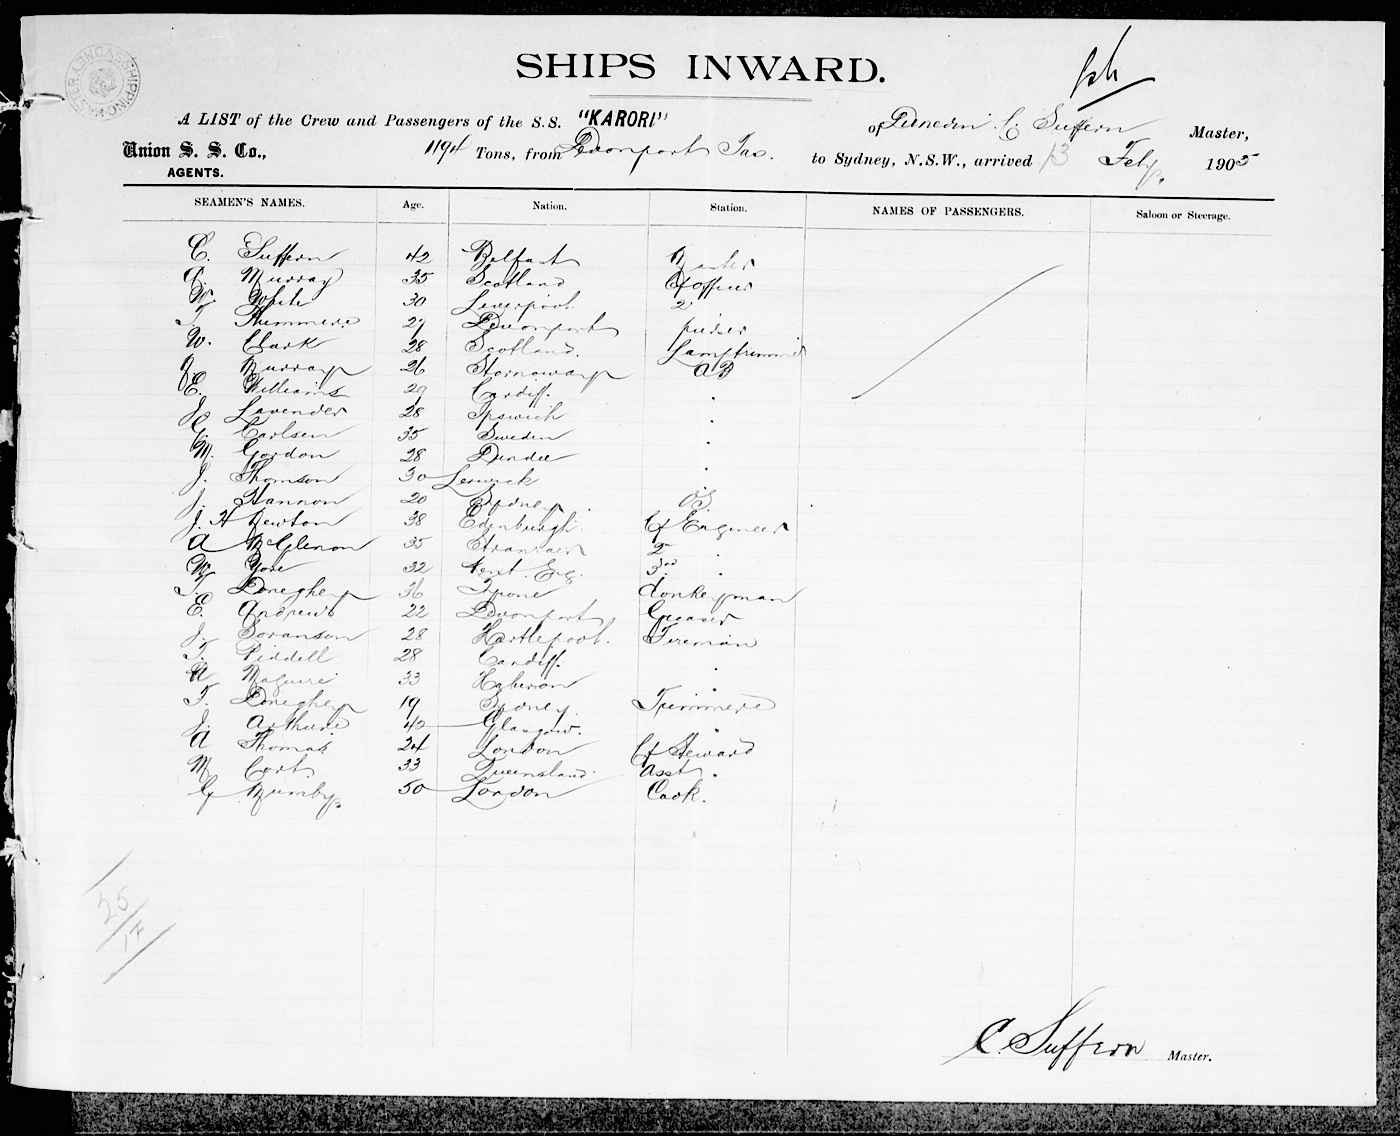 SHIPS INWARD.
A LIST of the Crew and Passengers of the S.S. "KARORI" of Dunedin C Suffern Master,
Union S. S. Co., AGENTS. 1194 Tons, from Devonport Tas. to Sydney, N.S.W., arrived 13 Feby. 1905
SEAMEN'S NAMES. Age. Nation. Station. NAMES OF PASSENGERS. Saloon or Steerage.
C. Suffern 42 Belfast Master
Murray 35 Scotland Cf Officer
W. White 30 Liverpool 2
T. 27 Devonport purser
W. Clark 28 Scotland. Lamptrimmer
Murray 26 Stornoway AB
E. Williams 29 Cardiff.
J. Lavender 28 Ipswich
Carlsen 35 Sweden
M. Gordon 28 Dundee
J. Thomson 30 Lerwick
J. Hannon 20 Sydney OS
J. H Newton 38 Edenburgh Cf Engineer
A McGlenon 35 Stranraer 2
W Yore 32 Kent. Eng. 3rd
T. Doneghey 36 Donkeyman
E. Andrews 22 Devonport Greaser
J. Soranson 28 Hartlepool. Fireman
T. Piddell 28 Cardiff.
Maguire 33
T. Doneghey 19 Sydney. Trimmers
J. Arthure Glasgow.
A Thomas 24 London Cf Steward
M Cort 33 Queensland asst
G Mumby 50 London Cook.
25
C. Suffern Master.